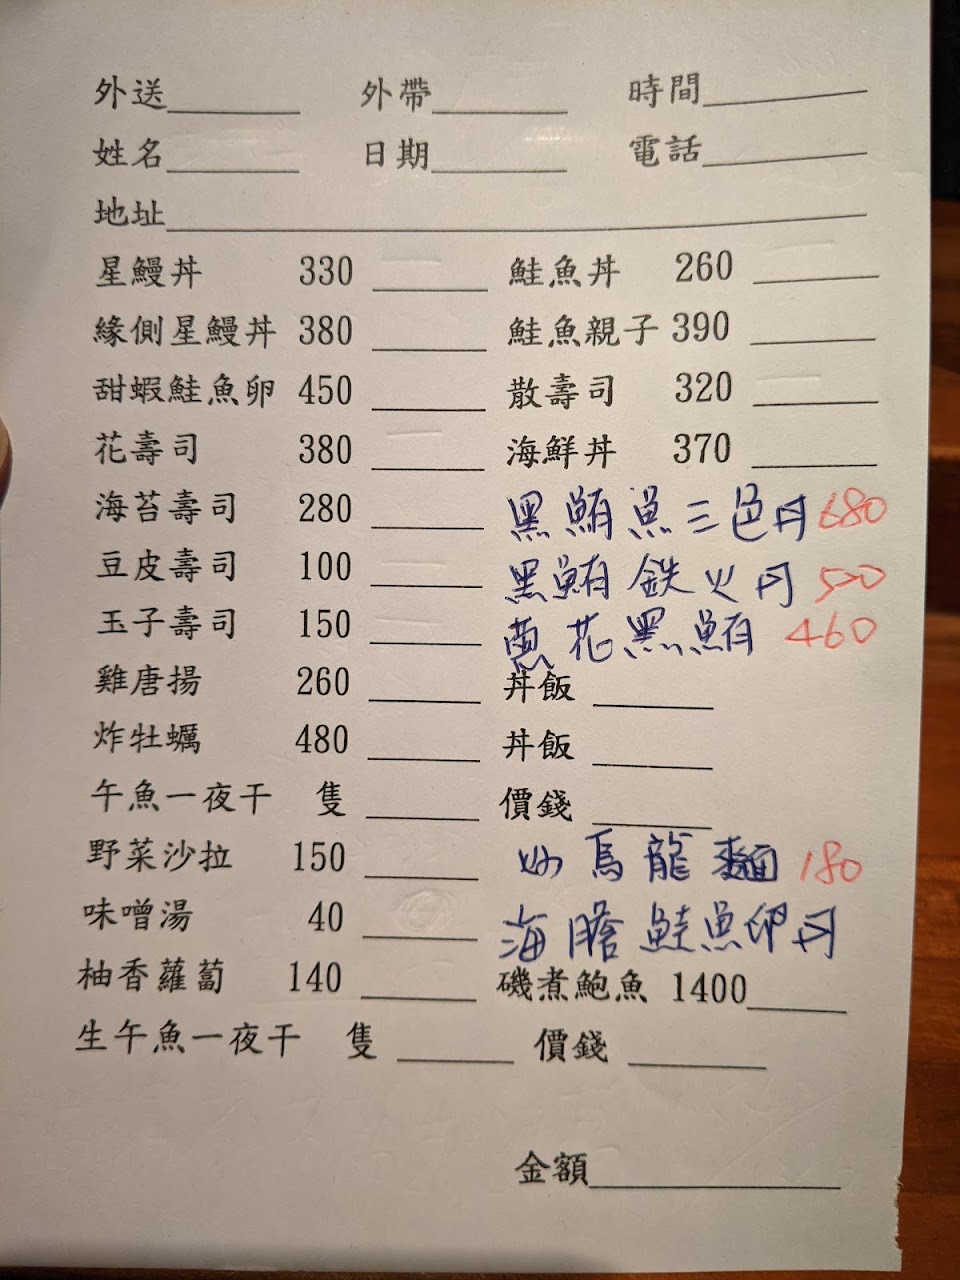 外送 外帶 時間
姓名 日期 電話
地址
星鰻丼 330 鮭魚丼 260
緣側星鰻丼 380 鮭魚親子 390
甜蝦鮭魚卵 450 散壽司 320
花壽司 380 海鮮丼 370
海苔壽司 280 黑鮪魚三色丼 680
豆皮壽司 100 黑鮪鉄火丼 500
玉子壽司 150 蔥花黑鮪 460
雞唐揚 260 丼飯
炸牡蠣 480 丼飯
午魚一夜干 隻 價錢
野菜沙拉 150 炒烏龍麵 180
味噌湯 40 海膽鮭魚卵丼
柚香蘿蔔 140 磯煮鮑魚 1400
生午魚一夜干 隻 價錢
金額